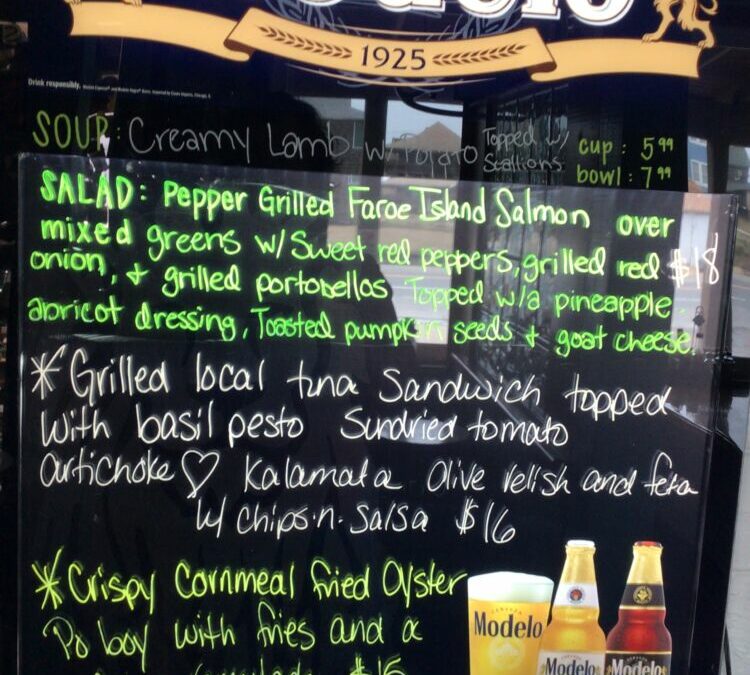 1925
Drink responsibly.
SOUP: Creamy Lamb w/ Potato Topped w/ Scallions cup: 5.99
bowl: 7.99
SALAD: Pepper Grilled Faroe Island Salmon over
mixed greens w/ Sweet red peppers, grilled red $18
onion, + grilled portobellos Topped w/a pineapple
apricot dressing, Toasted pumpkin seeds + goat cheese.
*Grilled local tuna Sandwich topped
with basil pesto Sundried tomato
artichoke ♡ Kalamata Olive relish and feta
w/ chips·n·Salsa $16
*Crispy Cornmeal fried Oyster
Po boy with fries and a
$15
CERVEZA
Modelo
Modelo
Modelo